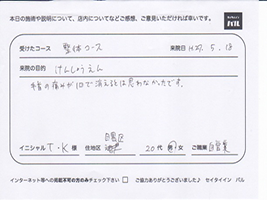 本日の施術や説明について、店内についてなどご感想、ご意見いただければ幸いです。
セイタイイン
パル
受けたコース 整体コース 来院日 H27. 5. 18
来院の目的 けんしょうえん
手首の痛みが1回で消えるとは思わなかったです。
イニシャル T・K 様 住地区 目黒区 20代 男・女 ご職業 自営業
インターネット等への掲載不可の方のみチェック下さい □ ご協力ありがとうございました♪ セイタイイン パル